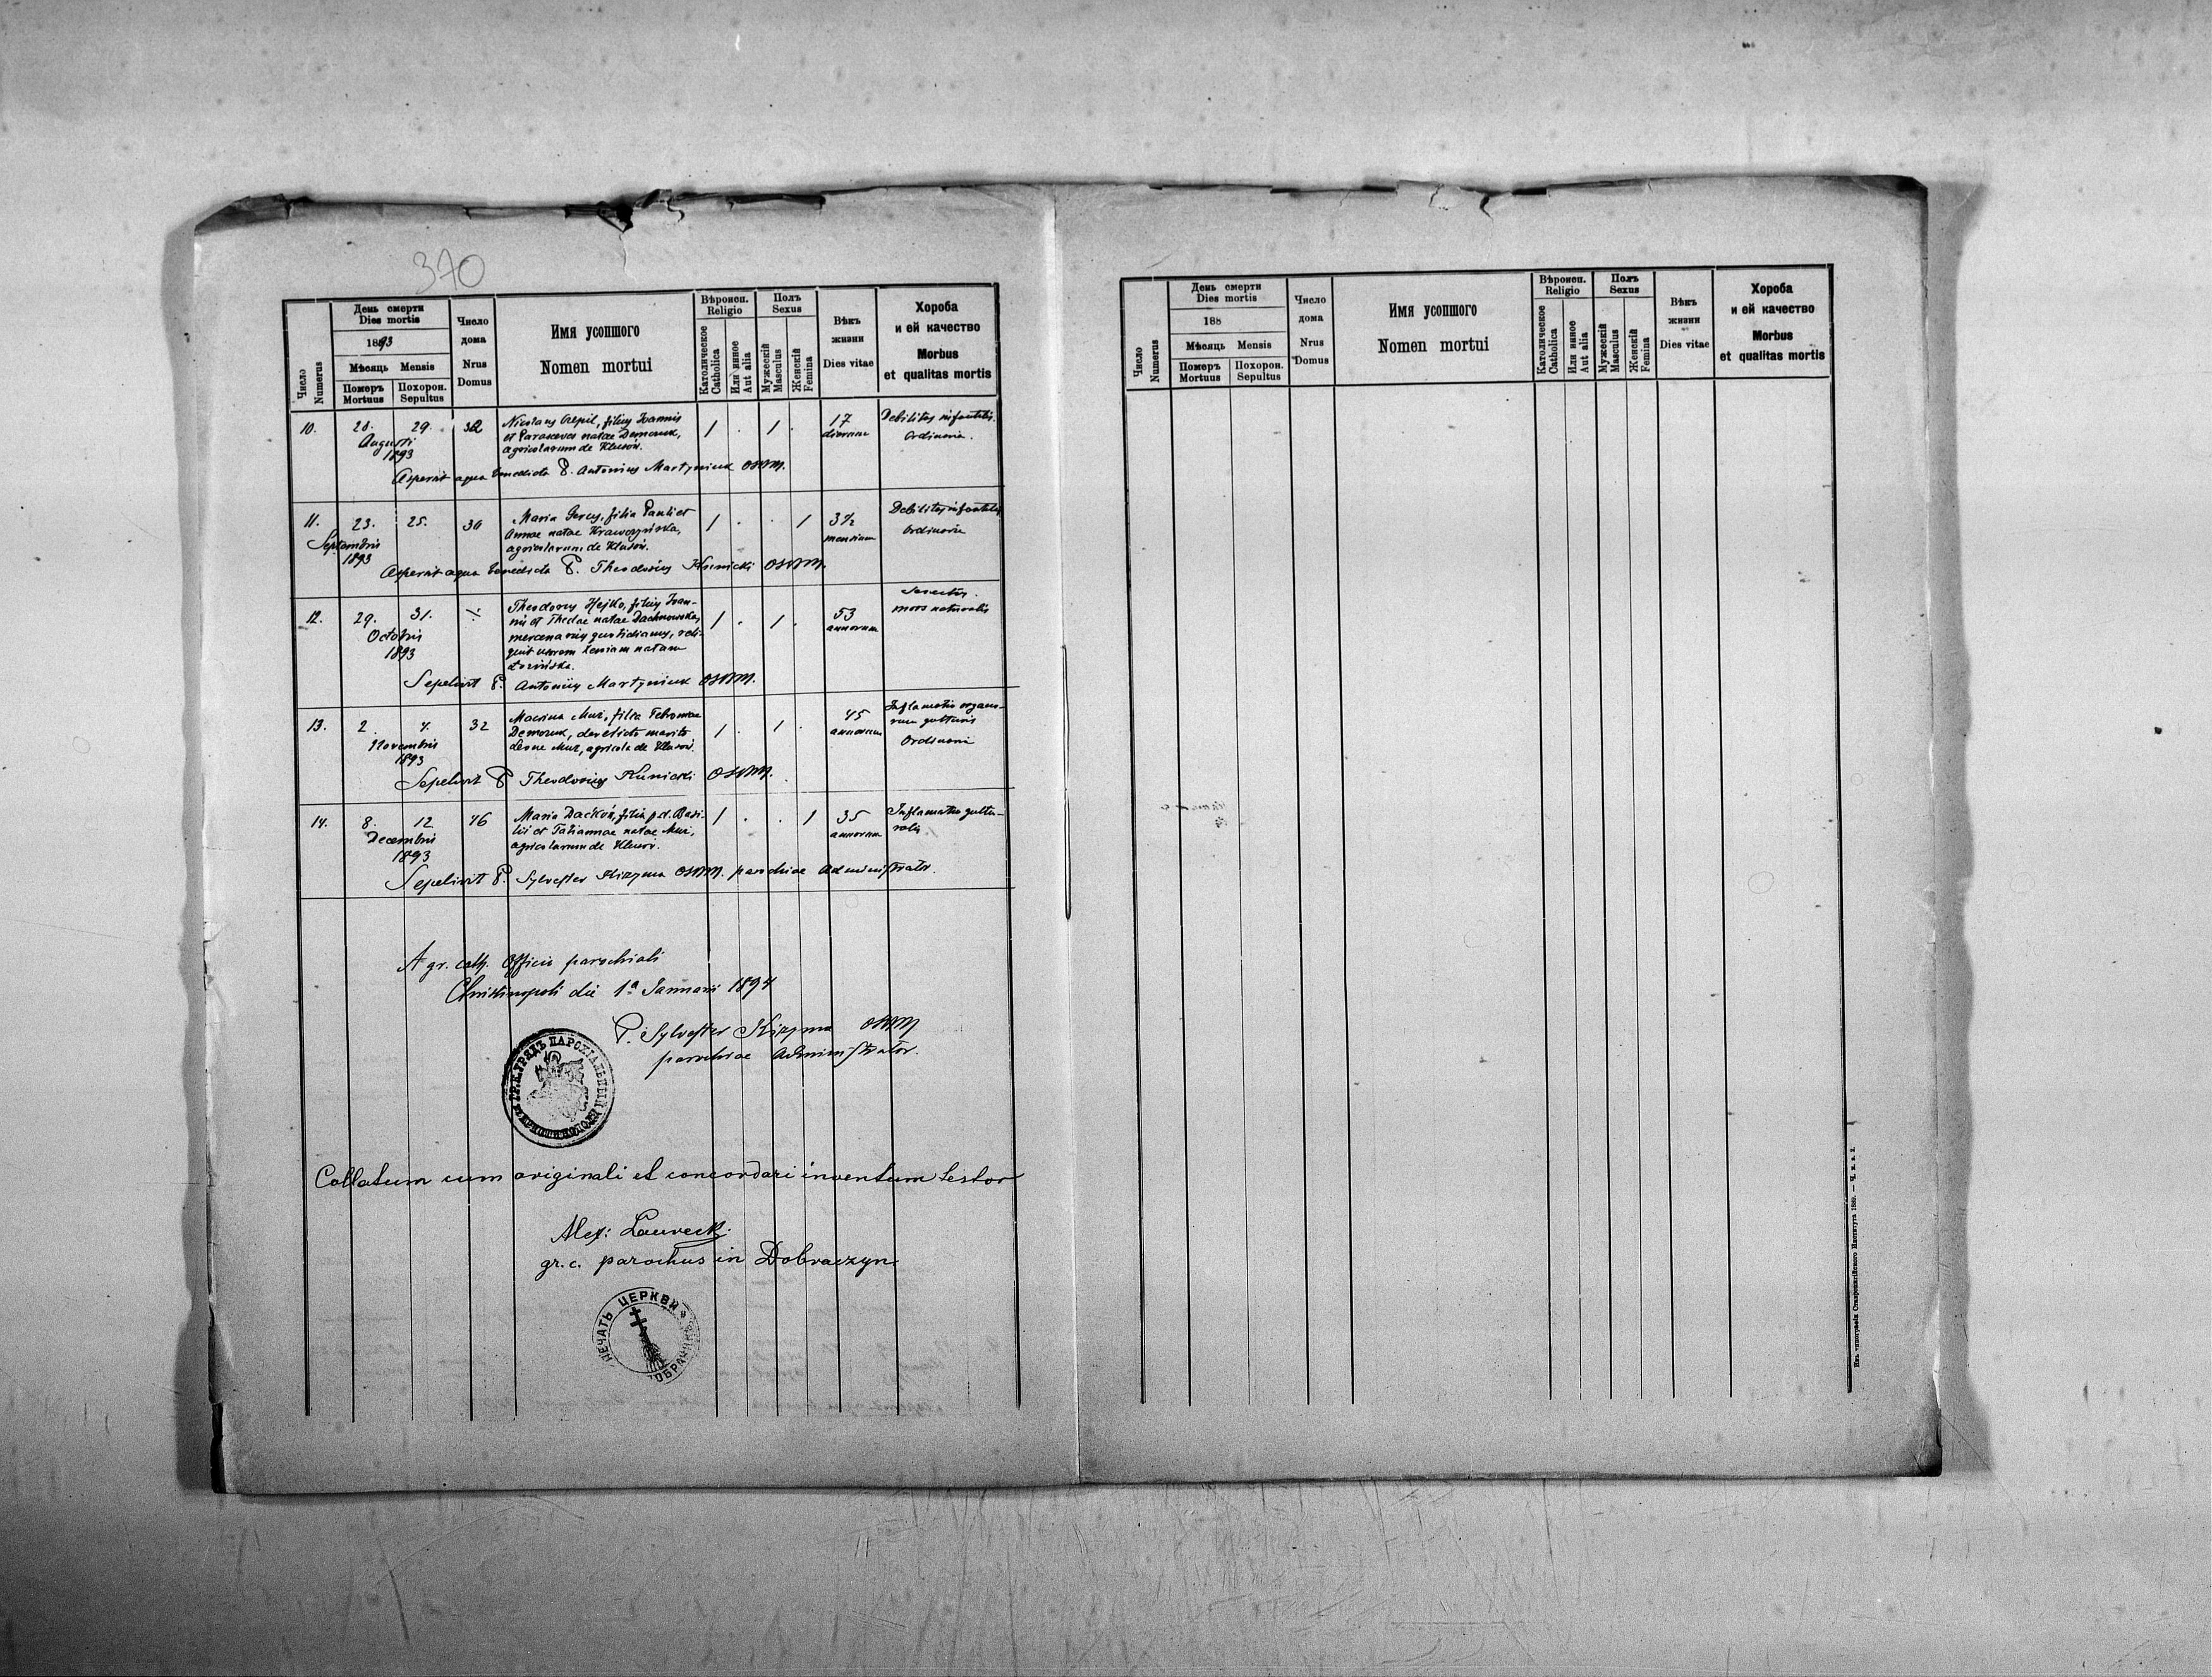 370
Число
Numerus
День смерти
Dies mortis
1893
Мѣсяць Mensis
Померъ
Mortuus
Похорон.
Sepultus
Число
дома
Nrus
Domus
Имя усопшого
Nomen mortui
Вѣроисп.
Religio
Католическое
Catholica
Или инное
Aut alia
Полъ
Sexus
Мужескій
Masculus
Женскій
Femina
Вѣкъ
жизни
Dies vitae
Хороба
и ей качество
Morbus
et qualitas mortis
10. 28. 29. 32 Nicolaus filius Joannis 1 . 1 . 17 Debilitas infantilis.
Augusti et Parasceves natae Demczuk, dierum Ordinaria.
1893 agricolarum de Klusów.
Aspersit aqua benedicta P. Antonius Martyniuk OSBM.
11. 23. 25. 30 Maria filia Pauli et 1 . . 1 3½ Debilitas infantilis
Septembris Annae natae mensium Ordinaria
1893 agricolarum de Klusów.
Aspersit aqua benedicta P. Theodosius Kunicki OSBM.
12. 29. 31. Theodorus Hejko, filius Joan- 1 . 1 . 53 Senectus.
Octobris nis et Theclae natae Dachnowska, annorum mors naturalis
1893 mercenarius quotidianus, reli-
quit uxorem natam
Sepelivit P. Antonius Martyniuk OSBM.
13. 2 4. 32 Macrina Muz, filia 1 . 1 . 45 Inflamatio organo-
Novembris derelicto marito annorum rum gutturis
1893 Leone Muz, agricola de Klusów. Ordinaria
Sepelivit P. Theodosius Kunicki OSBM.
14. 8. 12 46 Maria filia p.d. Basi- 1 . . 1 35 Inflamatio guttu-
Decembris lii et Tatiannae natae Muz, annorum ralis
1893 agricolarum de Klusów.
Sepelivit P. Sylvester Kizyma OSBM. parochiae Administrator.
A gr. cath. Officio parochiali
Christinopoli die 1ª Januarii 1894
P. Sylvester Kizyma OSBM
parochiae Administrator.
ГР. К. УРЯДЪ ПАРОХІАЛЬНЫЙ
Collatum cum originali et concordari inventum testor
Alex: Laurecki
gr. c. parochus in Dobraczyn
ПЕЧАТЬ ЦЕРКВИ
Число
Numerus
День смерти
Dies mortis
188
Мѣсяць Mensis
Померъ
Mortuus
Похорон.
Sepultus
Число
дома
Nrus
Domus
Имя усопшого
Nomen mortui
Вѣроисп.
Religio
Католическое
Catholica
Или инное
Aut alia
Полъ
Sexus
Мужескій
Masculus
Женскій
Femina
Вѣкъ
жизни
Dies vitae
Хороба
и ей качество
Morbus
et qualitas mortis
Изъ типографіи Ставропигійского Института 1889. —